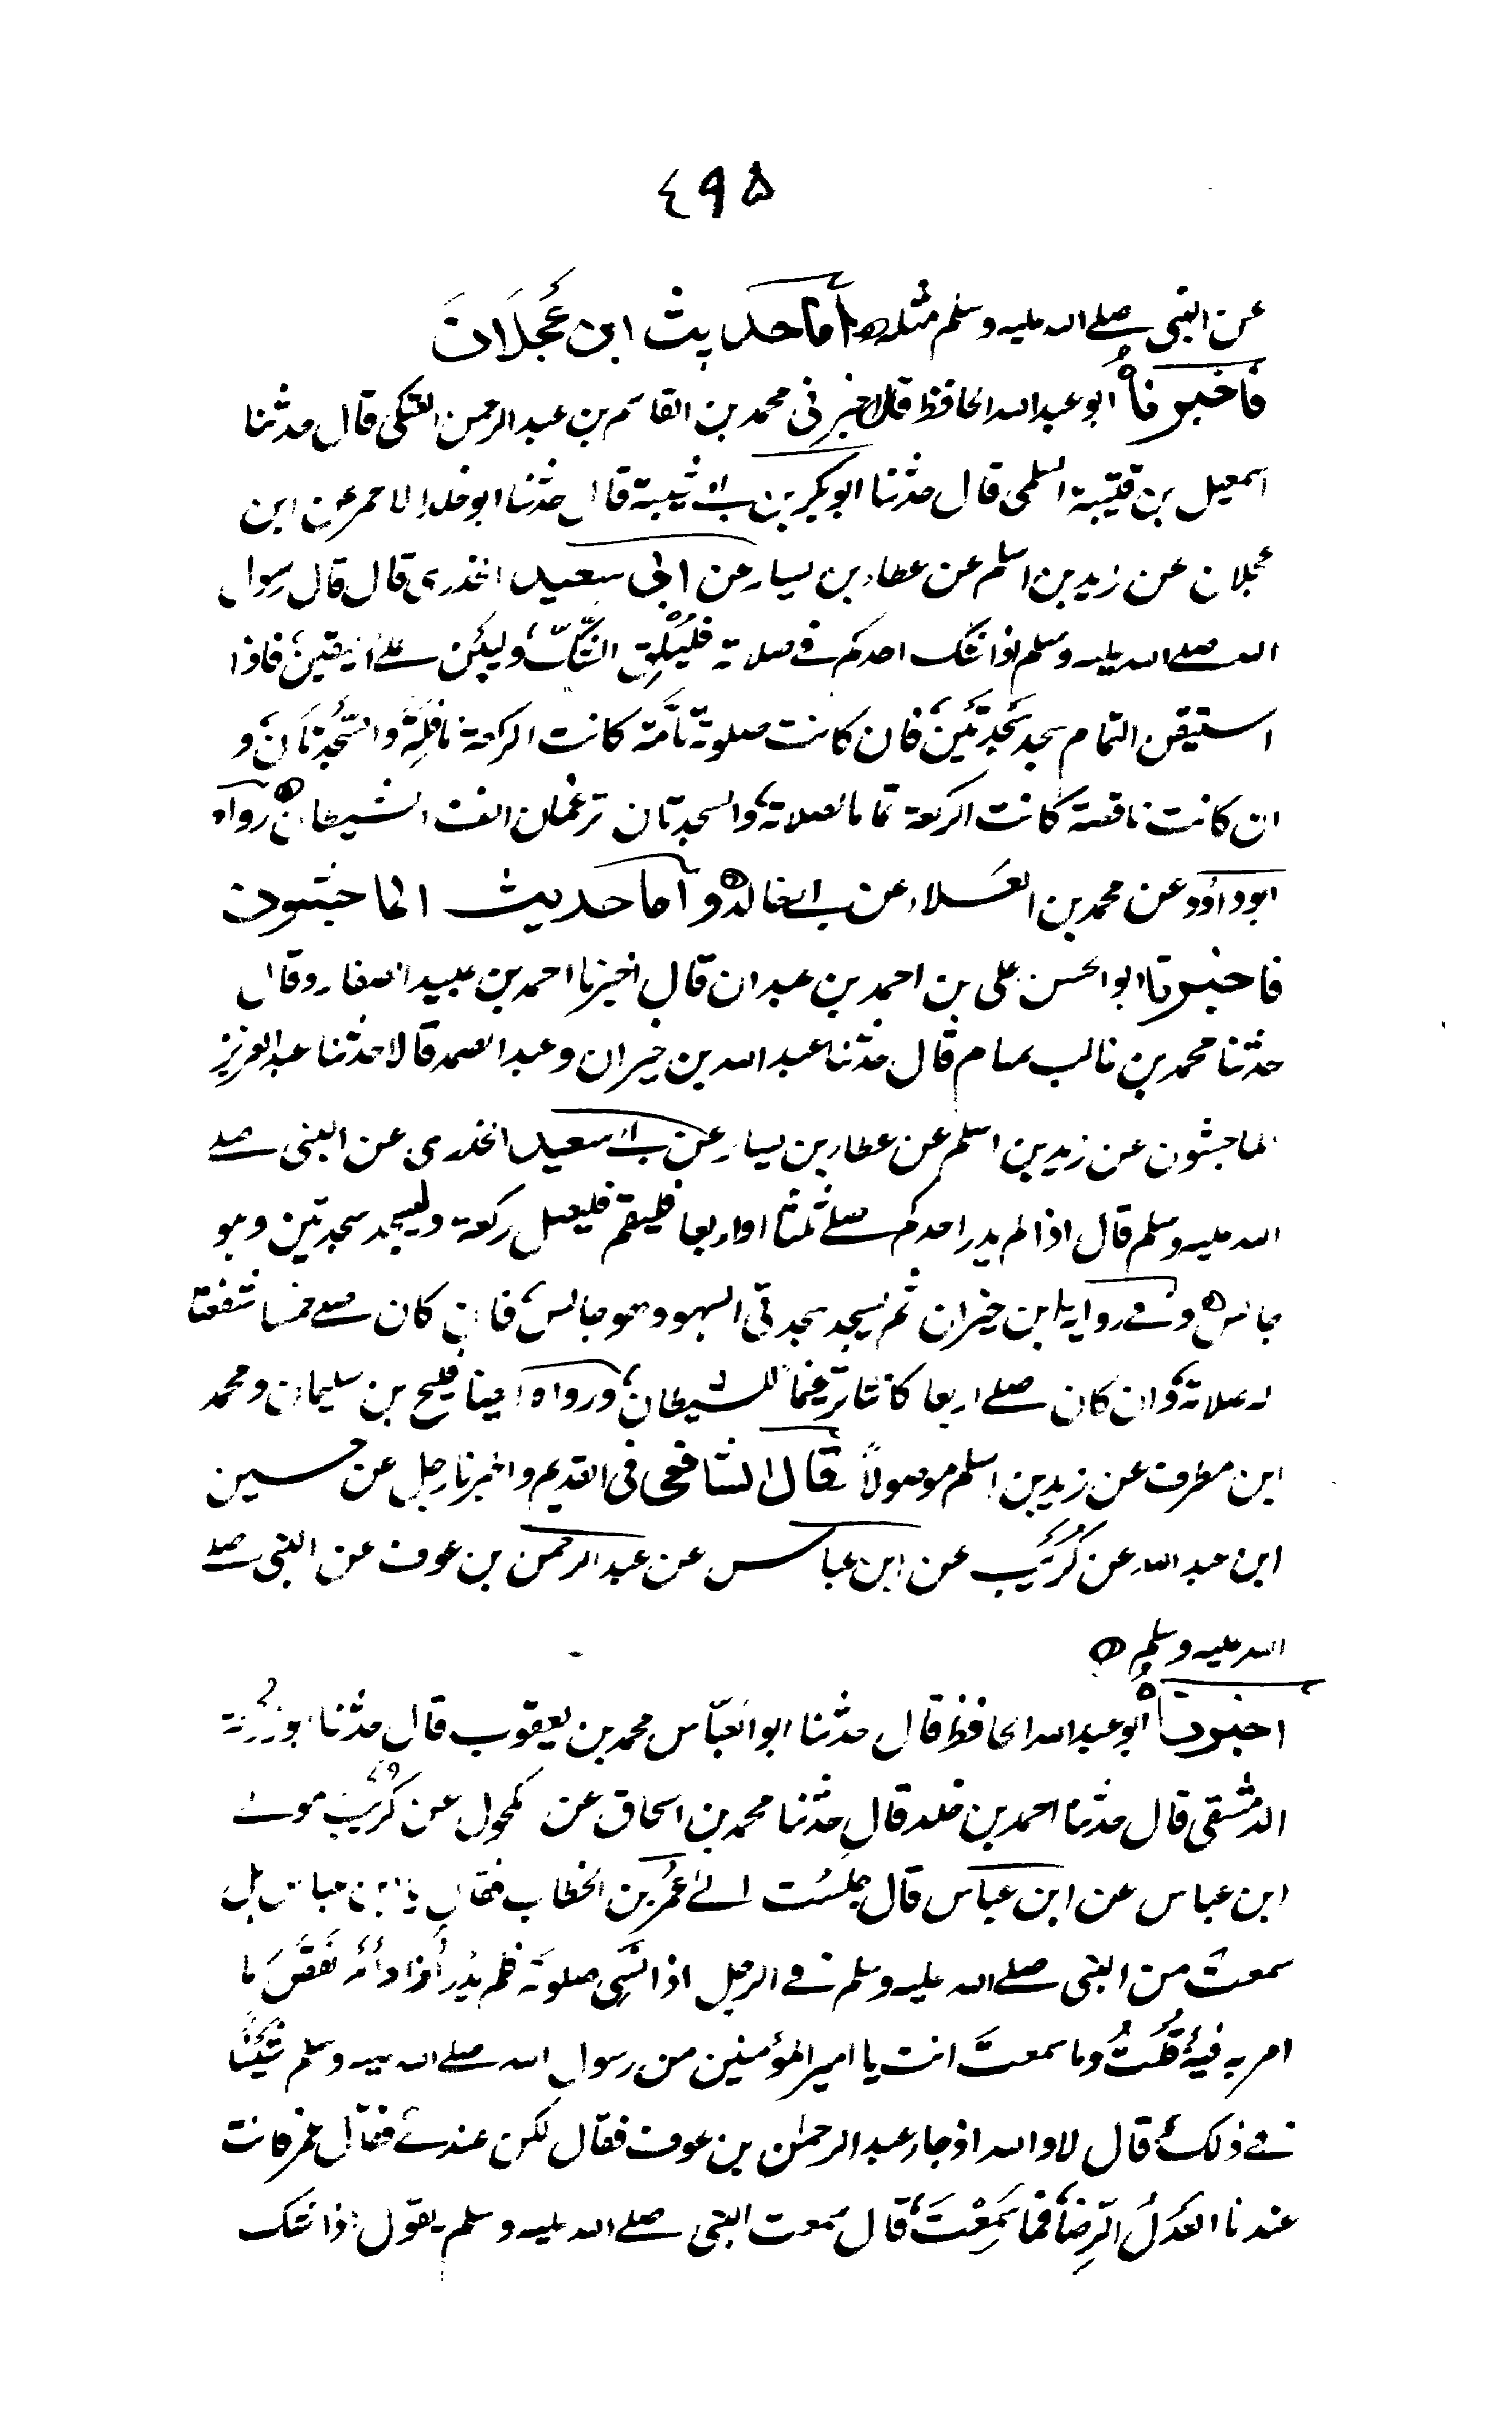 ٤٩٥
عن النبي صلى الله عليه وسلم مثله اما حديث ابن عَجلَان
فاخبرناه ابو عبد الله الحافظ قال اخبرني محمد بن القاسم بن عبد الرحمن العتكي قال حدثنا
اسمعيل بن قتيبة السلمي قال حدثنا ابو بكر بن ابي شيبة قال حدثنا ابو خلد الاحمر عن ابن
عجلان عن زيد بن اسلم عن عطاء بن يسار عن ابي سعيد الخدري قال قال رسول
الله صلى الله عليه وسلم اذا شك احدكم في صلاته فليُلْقِ الشَّكَّ وليكن على اليقين فاذا
استيقن التمام سجد سَجْدَتَيْن فان كانت صلوته تامَّة كانت الركعة نافلة والسَّجْدَتَان و
ان كانت ناقصة كانت الركعة تماما لصلاته والسجدتان ترغمان انف الشيطان رواه
ابو داؤد عن محمد بن العَلاء عن ابي خالد واما حديث الماجشون
فاخبرنا ابو الحسن علي بن احمد بن عبدان قال اخبرنا احمد بن عبيد الصفار وقال
حدثنا محمد بن غالب تمتام قال حدثنا عبد الله بن خيران وعبد الصمد قالا حدثنا عبد العزيز
الماجشون عن زيد بن اسلم عن عطاء بن يسار عن ابي سعيد الخدري عن النبي صلى
الله عليه وسلم قال اذا لم يدر احدكم صلى ثلثا او اربعا فليقم فليصل ركعة وليسجد سجدتين وهو
جالس وفي رواية ابن خيران ثم يسجد سجدتي السهو وهو جالس فان كان صلى خمسا شفعتا
له صلاته وان كان صلى اربعا كانتا ترغيما للشيطان ورواه ايضا فليح بن سليمان ومحمد
ابن مطرف عن زيد بن اسلم موصولاً قال الشافعي في القديم واخبرنا رجل عن حسين
ابن عبد الله عن كُرَيْب عن ابن عباس عن عبد الرحمن بن عوف عن النبي صلى
الله عليه وسلم
اخبرناه ابو عبد الله الحافظ قال حدثنا ابو العبّاس محمد بن يعقوب قال حدثنا ابو زُرْعة
الدمشقي قال حدثنا احمد بن خلد قال حدثنا محمد بن اسحاق عن مكحول عن كُرَيْب مولى
ابن عباس عن ابن عباس قال جلسْت الى عُمَر بن الخطاب فقال يا ابن عباس هل
سمعت من النبي صلى الله عليه وسلم في الرجل اذا نَسِيَ صلوته فلم يَدْرِ أزاد أم نَقَصَ ما
امر به فيه قُلْتُ وما سمعتَ انت يا امير المؤمنين من رسول الله صلى الله عليه وسلم شَيْئًا
في ذلك قال لا والله اذ جاء عبد الرحمٰن بن عوف فقال لكن عندي فقال عمر فانت
عندنا العَدْلُ الرِّضَا فما سَمِعْتَ قال سمعت النبي صلى الله عليه وسلم يقول اذا شك